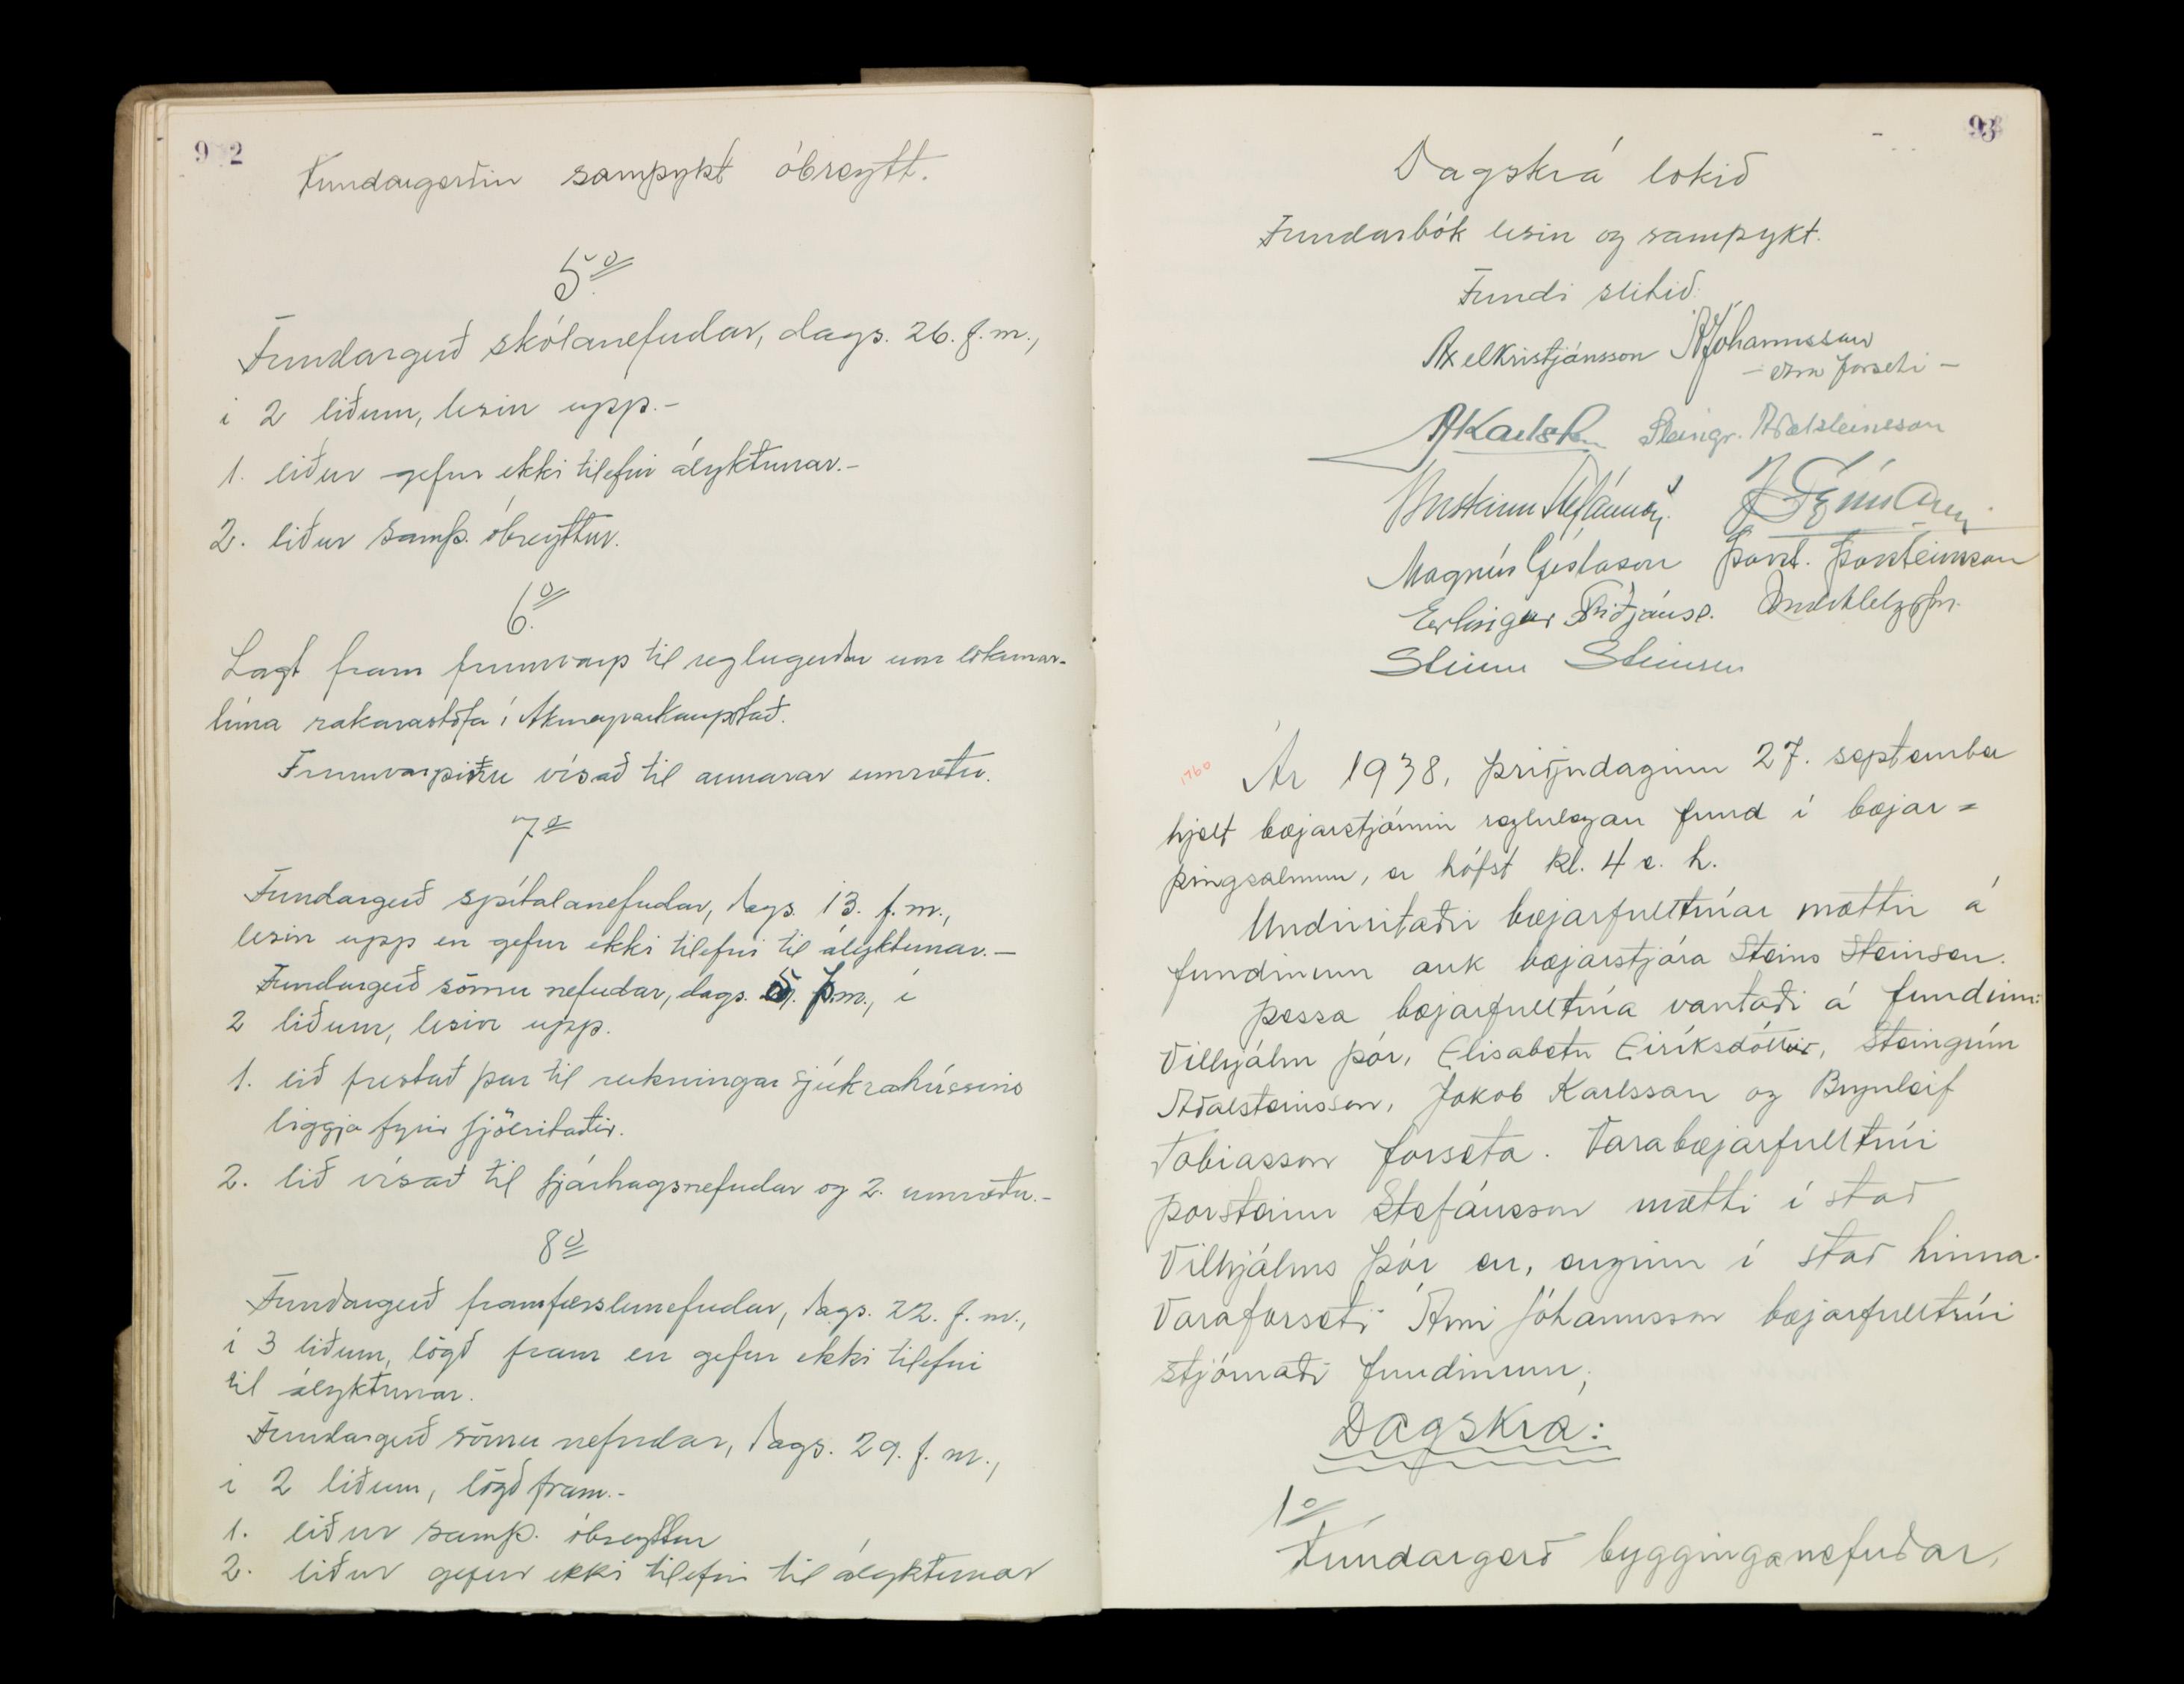 92
Fundargerðin samþykt óbreytt.
5º
Fundargerð skólanefndar, dags. 26. f. m.,
í 2 liðum, lesin upp.-
1. liður gefur ekki tilefni ályktunar.-
2. liður samþ. óbreyttur.
6º
Lagt fram frumvarp til reglugerðar um lokunar-
tíma rakarastofa í Akureyrarkaupstað.
Frumvarpinu vísað til annarar umræðu.
7º
Fundargerð spítalanefndar, dags. 13. f. m.,
lesin upp en gefur ekki tilefni til ályktunar.-
Fundargerð sömu nefndar, dags. þ.m., í
2 liðum, lesin upp.
1. lið frestað þar til reikningar sjúkrahússins
liggja fyrir fjölritaðir.
2. lið vísað til fjárhagsnefndar og 2. umræðu.-
8º
Fundargerð framfærslunefndar, dags. 22. f. m.,
í 3 liðum, lögð fram en gefur ekki tilefni
til ályktunar.
Fundargerð sömu nefndar, dags. 29. f. m.,
í 2 liðum, lögð fram.-
1. liður samþ. óbreyttur
2. liður gefur ekki tilefni til ályktunar
93
Dagskrá lokið
Fundarbók lesin og samþykt.
Fundi slitið.
Axel Kristjánsson Á Jóhannsson
- sem forseti -
J Karlsson Steingr. Aðalsteinsson
Þorsteinn Stefánsson
Magnús Gíslason Þorst. Þorsteinsson
Erlingur Friðjónss.
Steinn Steinsen
1760
Ár 1938, þriðjudaginn 27. september
hjelt bæjarstjórnin reglulegan fund í bæjar=
þingsalnum, er hófst kl. 4 e. h.
Undirritaðir bæjarfulltrúar mættir á
fundinum auk bæjarstjóra Steins Steinsen.
Þessa bæjarfulltrúa vantaði á fundinn:
Vilhjálm Þór, Elisabetu Eiríksdóttur, Steingrím
Aðalsteinsson, Jakob Karlsson og Brynleif
Tobiasson forseta. Varabæjarfulltrúi
Þorsteinn Stefánsson mætti í stað
Vilhjálms Þór en, enginn í stað hinna.
Varaforseti Árni Jóhannsson bæjarfulltrúi
stjórnaði fundinum,
Dagskrá:
1º
Fundargerð bygginganefndar,